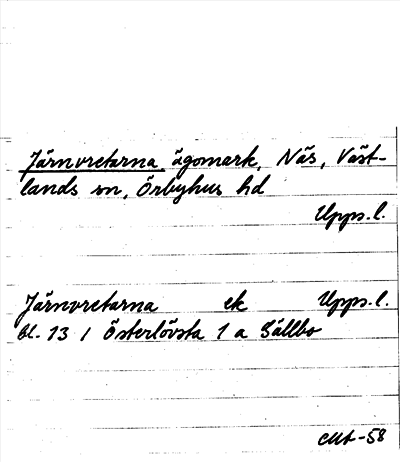 Järnvretarna ägomark, Näs, Väst-
lands sn, Örbyhus hd
Upps.l.
Järnvretarna ek Upps.l.
Bl. 13 I Österlövsta 1 a Sällbo
-58